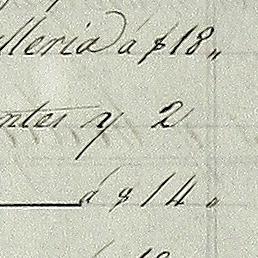 lleria á $18„
ntes y 2
á $14„